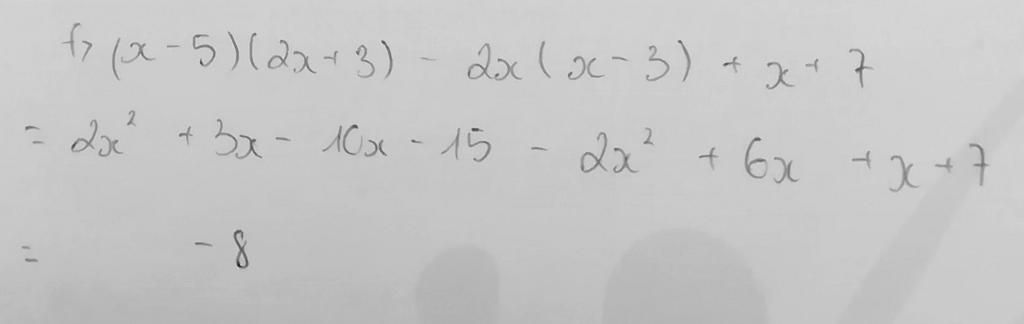 f> (x - 5)(2x + 3) - 2x(x - 3) + x + 7
= 2x² + 3x - 10x - 15 - 2x² + 6x + x + 7
= - 8